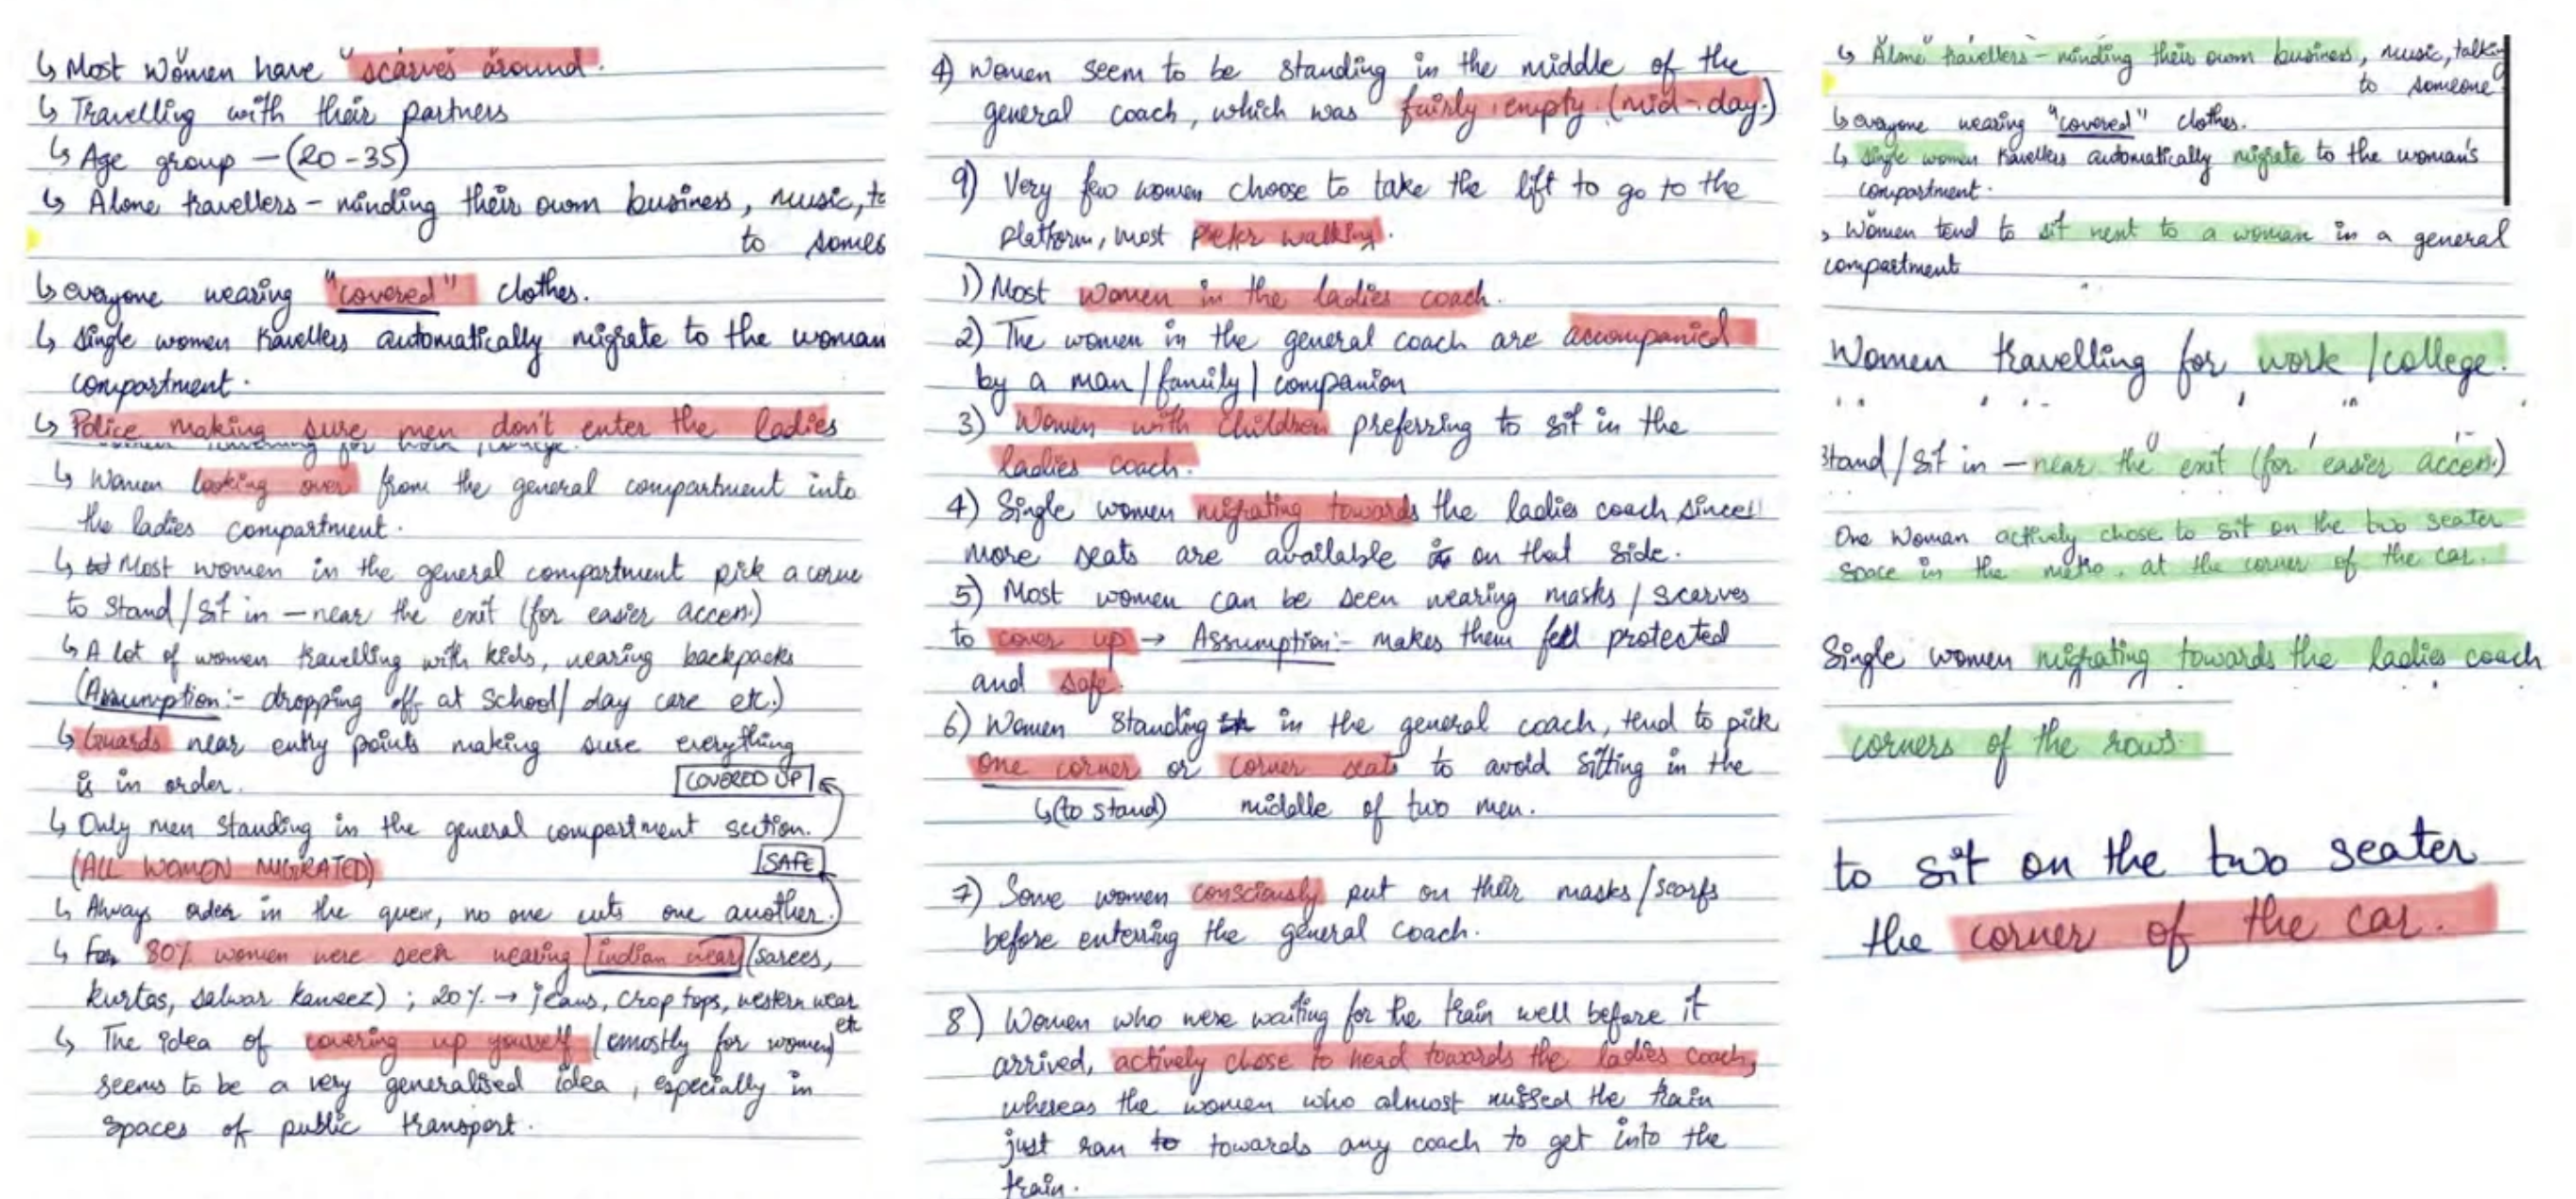 ↳ Most women have "scarves" around.
↳ Travelling with their partners
↳ Age group – (20-35)
↳ Alone travellers – minding their own business, music, ta
to someo
↳ everyone wearing "covered" clothes.
↳ single women travellers automatically migrate to the woman
compartment.
↳ Police making sure men don't enter the ladies
↳ Women looking over from the general compartment into
the ladies compartment.
↳ Most women in the general compartment pick a corne
to stand/sit in – near the exit (for easier access.)
↳ A lot of women travelling with kids, wearing backpacks
(Assumption:- dropping off at school/ day care etc.)
↳ Guards near entry points making sure everything
is in order.
COVERED UP
↳ Only men standing in the general compartment section.
(ALL WOMEN MIGRATED)
SAFE
↳ Always order in the queue, no one cuts one another.
↳ 80% women were seen wearing indian wear (sarees,
kurtas, salwar kameez) ; 20% → jeans, crop tops, western wear
etc
↳ The idea of covering up yourself (mostly for women)
seems to be a very generalised idea, especially in
spaces of public transport.
4) Women seem to be standing in the middle of the
general coach, which was fairly empty. (mid-day.)
9) Very few women choose to take the lift to go to the
platform, most prefer walking.
1) Most women in the ladies coach.
2) The women in the general coach are accompanied
by a man/family/companion
3) Women with children preferring to sit in the
ladies coach.
4) Single women migrating towards the ladies coach since
more seats are available on that side.
5) Most women can be seen wearing masks/scarves
to cover up → Assumption:- makes them feel protected
and safe.
6) Women standing in the general coach, tend to pick
one corner or corner seats to avoid sitting in the
↳(to stand) middle of two men.
7) Some women consciously put on their masks/scarfs
before entering the general coach.
8) Women who were waiting for the train well before it
arrived, actively chose to head towards the ladies coach,
whereas the women who almost missed the train
just ran to towards any coach to get into the
train.
↳ Alone travellers – minding their own business, music, talkin
to someone
↳ everyone wearing "covered" clothes.
↳ single women travellers automatically migrate to the woman's
compartment.
Women tend to sit next to a woman in a general
compartment
Women travelling for work/college.
Stand/sit in – near the exit (for easier access.)
One woman actively chose to sit on the two seater
space in the metro, at the corner of the car.
Single women migrating towards the ladies coach
corners of the rows.
to sit on the two seater
the corner of the car.